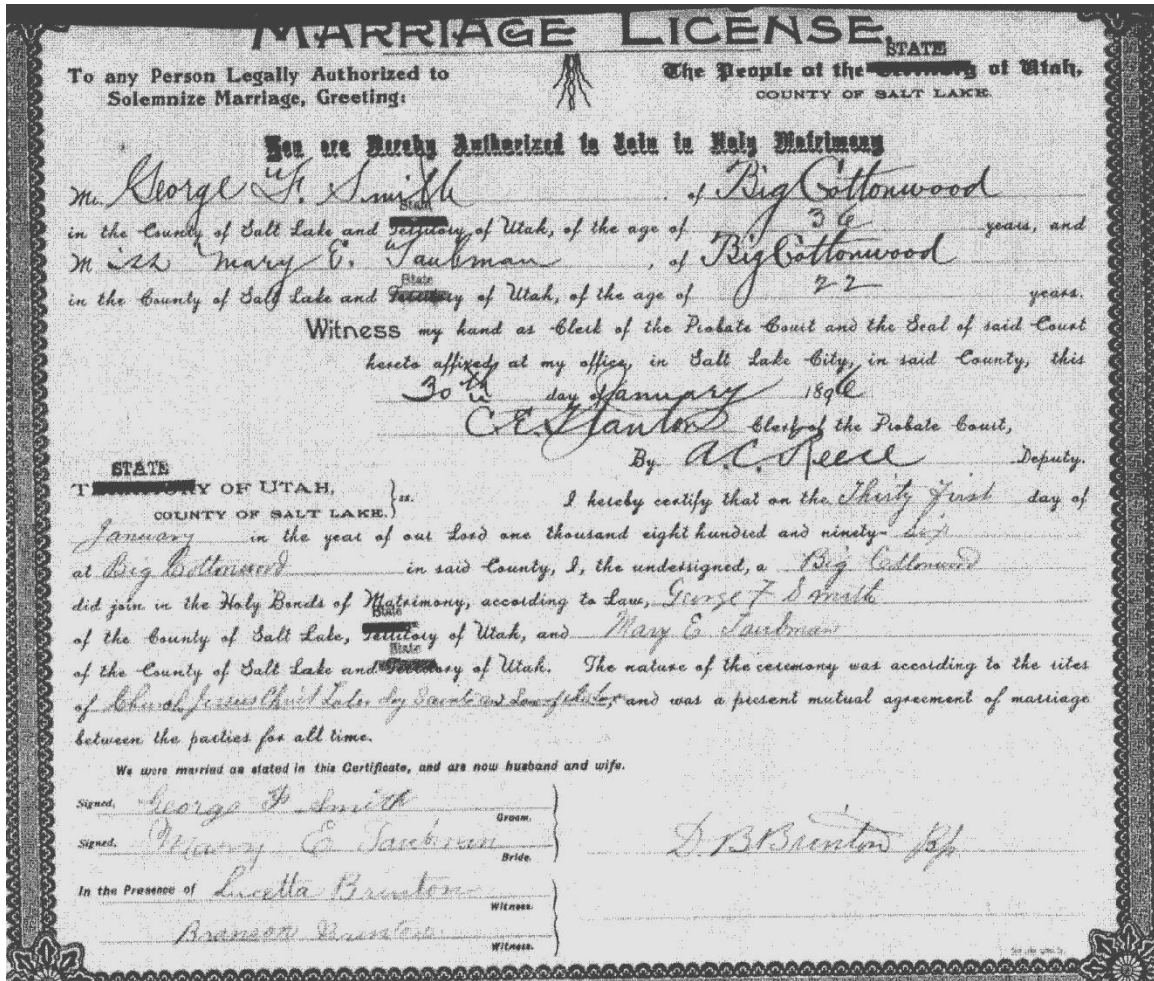 MARRIAGE LICENSE.
To any Person Legally Authorized to
Solemnize Marriage, Greeting:
STATE
The People of the Territory of Utah,
COUNTY OF SALT LAKE.
You are Hereby Authorized to Join in Holy Matrimony
Mr. George F. Smith of Big Cottonwood
State
in the County of Salt Lake and Territory of Utah, of the age of 36 years, and
Miss Mary E. Taubman, of Big Cottonwood
State
in the County of Salt Lake and Territory of Utah, of the age of 22 years.
Witness my hand as Clerk of the Probate Court and the Seal of said Court
hereto affixed, at my office, in Salt Lake City, in said County, this
30th day of January 1896
C. E. Stanton Clerk of the Probate Court,
By A. C. Reese Deputy.
STATE
TERRITORY OF UTAH,
COUNTY OF SALT LAKE. } ss.
I hereby certify that on the Thirty First day of
January in the year of our Lord one thousand eight hundred and ninety-six
at Big Cottonwood in said County, I, the undersigned, a Big Cottonwood
did join in the Holy Bonds of Matrimony, according to Law, George F Smith
State
of the County of Salt Lake, Territory of Utah, and Mary E Taubman
State
of the County of Salt Lake and Territory of Utah. The nature of the ceremony was according to the rites
of Church Jesus Christ Later day Saints and, and was a present mutual agreement of marriage
between the parties for all time.
We were married as stated in this Certificate, and are now husband and wife.
Signed, George F Smith Groom.
Signed, Mary E Taubman Bride.
D B Brinton
In the Presence of Lucetta Brinton Witness.
Branson Brinton Witness.